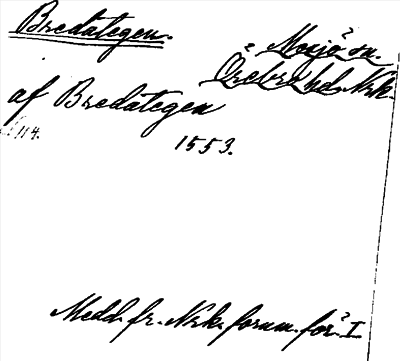 Bredategen.
Mosjö sn.
Örebro hd. Nrk.
af Bredategen
114.
1553.
Medd. fr. Nrk. fornm. för. I